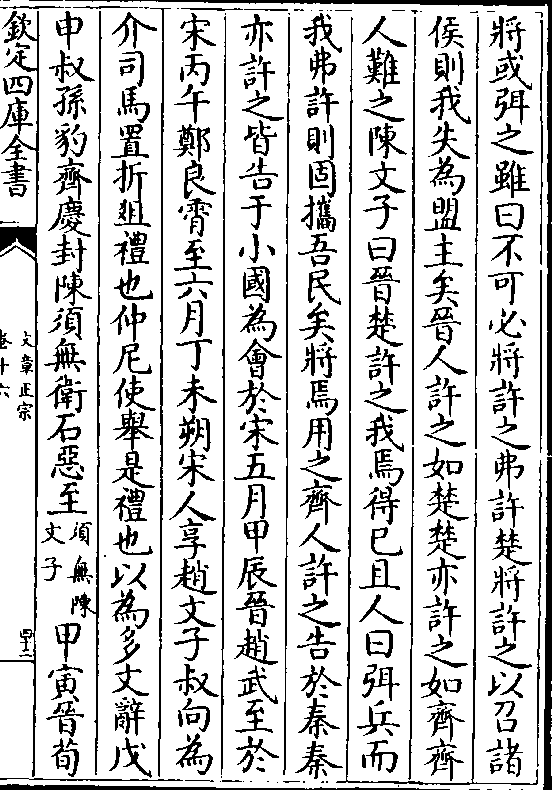 將或弭之雖曰不可必將許之弗許楚將許之以召諸
侯則我失為盟主矣晉人許之如楚楚亦許之如齊齊
人難之陳文子曰晉楚許之我焉得已且人曰弭兵而
我弗許則固攜吾民矣將焉用之齊人許之告於秦秦
亦許之皆告于小國為會於宋五月甲辰晉趙武至於
宋丙午鄭良霄至六月丁未朔宋人享趙文子叔向為
介司馬置折俎禮也仲尼使舉是禮也以為多文辭戊
申叔孫豹齊慶封陳須無衛石惡至須無陳文子甲寅晉荀
欽定四庫全書
文章正宗
卷十六
四十二